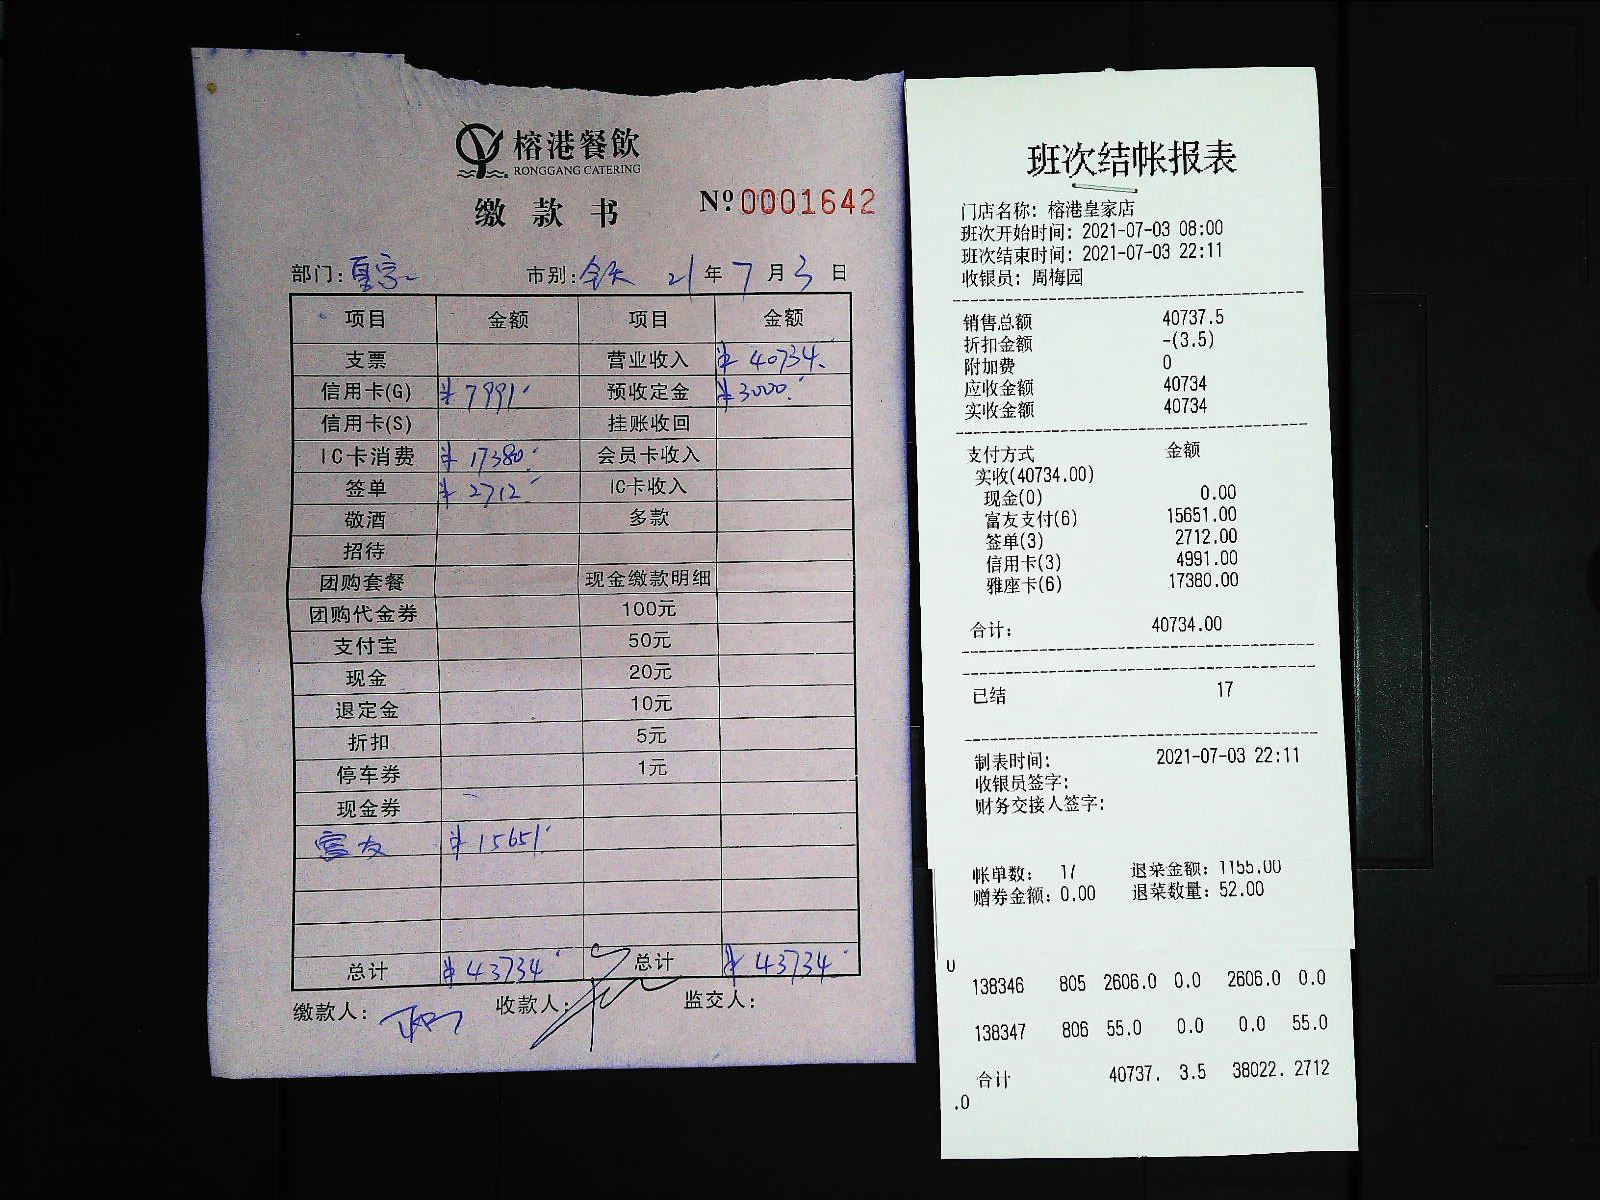 榕港餐飲
RONGGANG CATERING
缴款书
№0001642
部门:皇家 市别:全天 21年7月3日
项目 金额 项目 金额
支票 营业收入 ¥40734.
信用卡(G) ¥7991. 预收定金 ¥3000.
信用卡(S) 挂账收回
IC卡消费 ¥17380. 会员卡收入
签单 ¥2712 IC卡收入
敬酒 多款
招待
团购套餐 现金缴款明细
团购代金券 100元
支付宝 50元
现金 20元
退定金 10元
折扣 5元
停车券 1元
现金券
富友 ¥15651.
总计 ¥43734. 总计 ¥43734.
缴款人: 收款人: 监交人:
班次结帐报表
门店名称: 榕港皇家店
班次开始时间: 2021-07-03 08:00
班次结束时间: 2021-07-03 22:11
收银员: 周梅园
销售总额 40737.5
折扣金额 -(3.5)
附加费 0
应收金额 40734
实收金额 40734
支付方式 金额
实收(40734.00)
现金(0) 0.00
富友支付(6) 15651.00
签单(3) 2712.00
信用卡(3) 4991.00
雅座卡(6) 17380.00
合计: 40734.00
已结 17
制表时间: 2021-07-03 22:11
收银员签字:
财务交接人签字:
帐单数: 17 退菜金额: 1155.00
赠券金额: 0.00 退菜数量: 52.00
U
138346 805 2606.0 0.0 2606.0 0.0
138347 806 55.0 0.0 0.0 55.0
合计 40737. 3.5 38022. 2712
.0